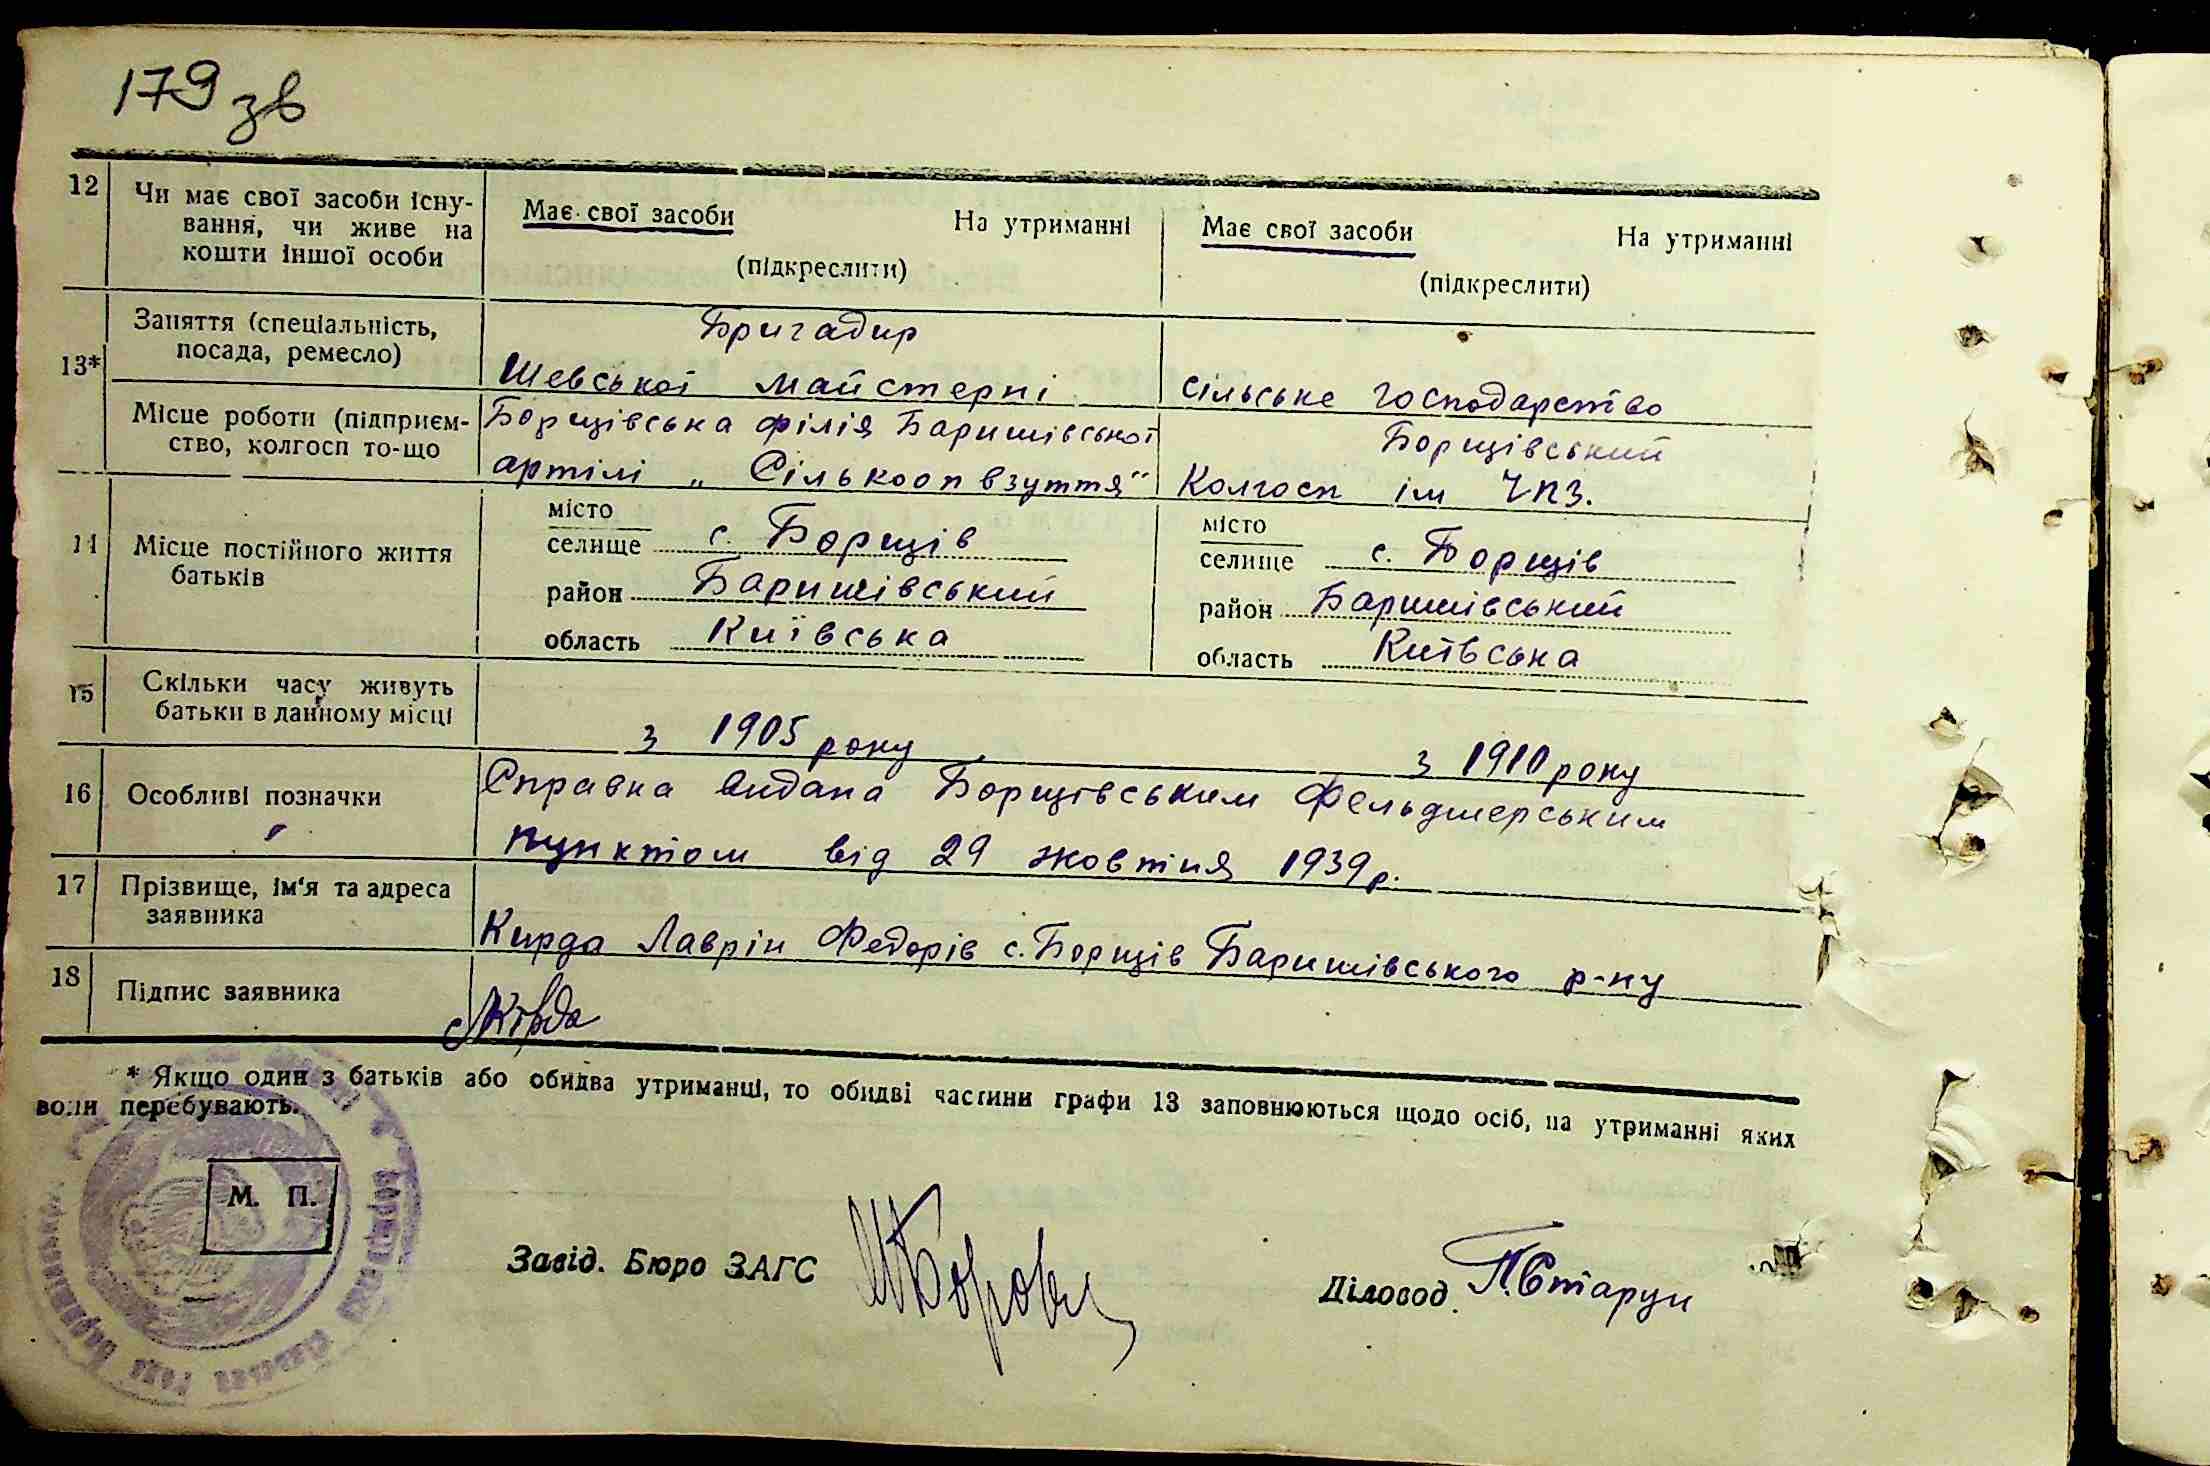 179 зв
12 Чи має свої засоби існу-
вання, чи живе на
кошти іншої особи
Має свої засоби На утриманні
(підкреслити)
Має свої засоби На утриманні
(підкреслити)
13*
Заняття (спеціальність,
посада, ремесло)
Бригадир
Шевської майстерні
сільське господарство
Місце роботи (підприєм-
ство, колгосп то-що
Борщівська філія Баришівської
артілі „Сількооп взуття“
Борщівський
Колгосп ім ЧПЗ.
14 Місце постійного життя
батьків
місто
селище с. Борщів
район Баришівський
область Київська
місто
селище с. Борщів
район Баришівський
область Київська
15 Скільки часу живуть
батьки в данному місці
з 1905 року
з 1910 року
16 Особливі позначки
Справка видана Борщівським Фельдшерським
пунктом від 29 жовтня 1939р.
17 Прізвище, ім'я та адреса
заявника
Кирда Лаврін Федорів с. Борщів Баришівського р-ну
18 Підпис заявника
* Якщо один з батьків або обидва утриманці, то обидві частини графи 13 заповнюються щодо осіб, на утриманні яких
вони перебувають.
М. П.
Завід. Бюро ЗАГС
Діловод П.Старун